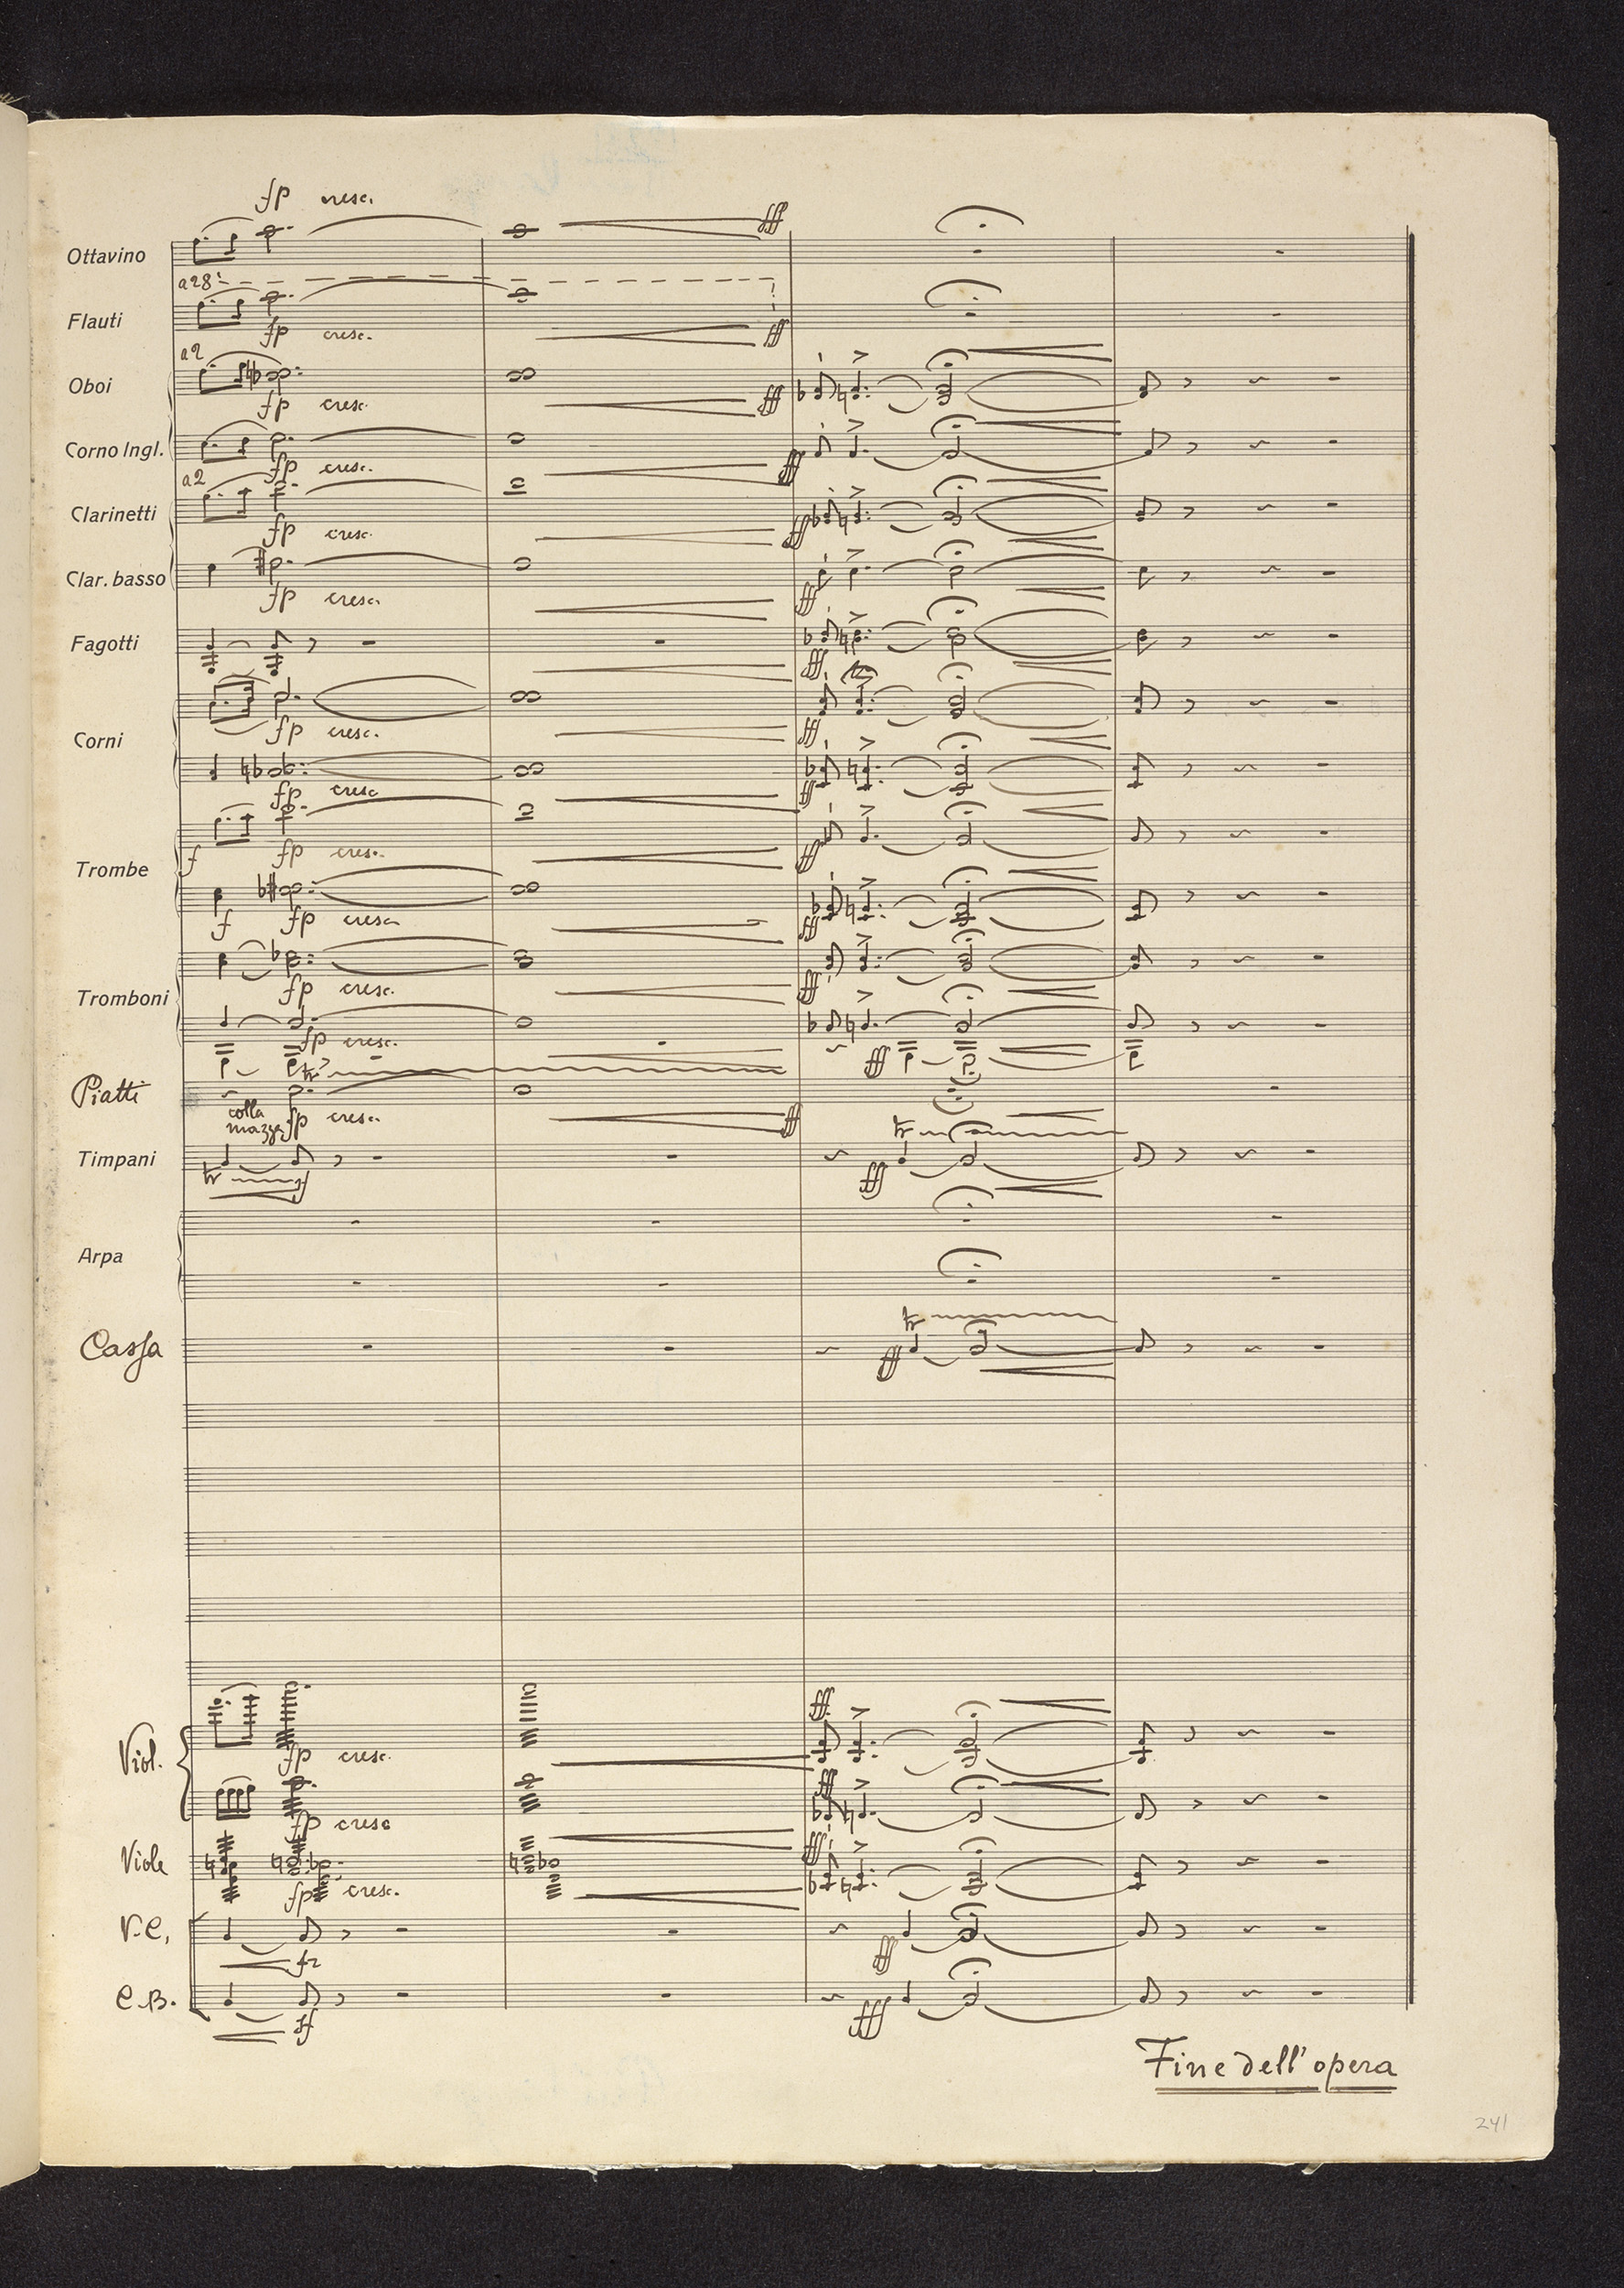 fp cresc.
ff
Ottavino
a2 8
Flauti
fp cresc.
ff
a2
Oboi
fp cresc.
ff
Corno Ingl.
fp cresc.
ff
a2
Clarinetti
fp cresc.
ff
Clar. basso
fp cresc.
ff
Fagotti
ff
Corni
fp cresc.
ff
fp cresc
ff
Trombe
f fp cresc.
ff
f fp cresc
ff
Tromboni
fp cresc.
ff
fp cresc.
ff
tr
Piatti
colla
mazza fp cresc.
ff
tr
Timpani
tr sf
ff
Arpa
tr
Cassa
ff
ff
Viol.
fp cresc.
ff
fp cresc
ff
Viole
fp cresc.
V.C.
ff
fz
C.B.
sf
fff
Fine dell'opera
241